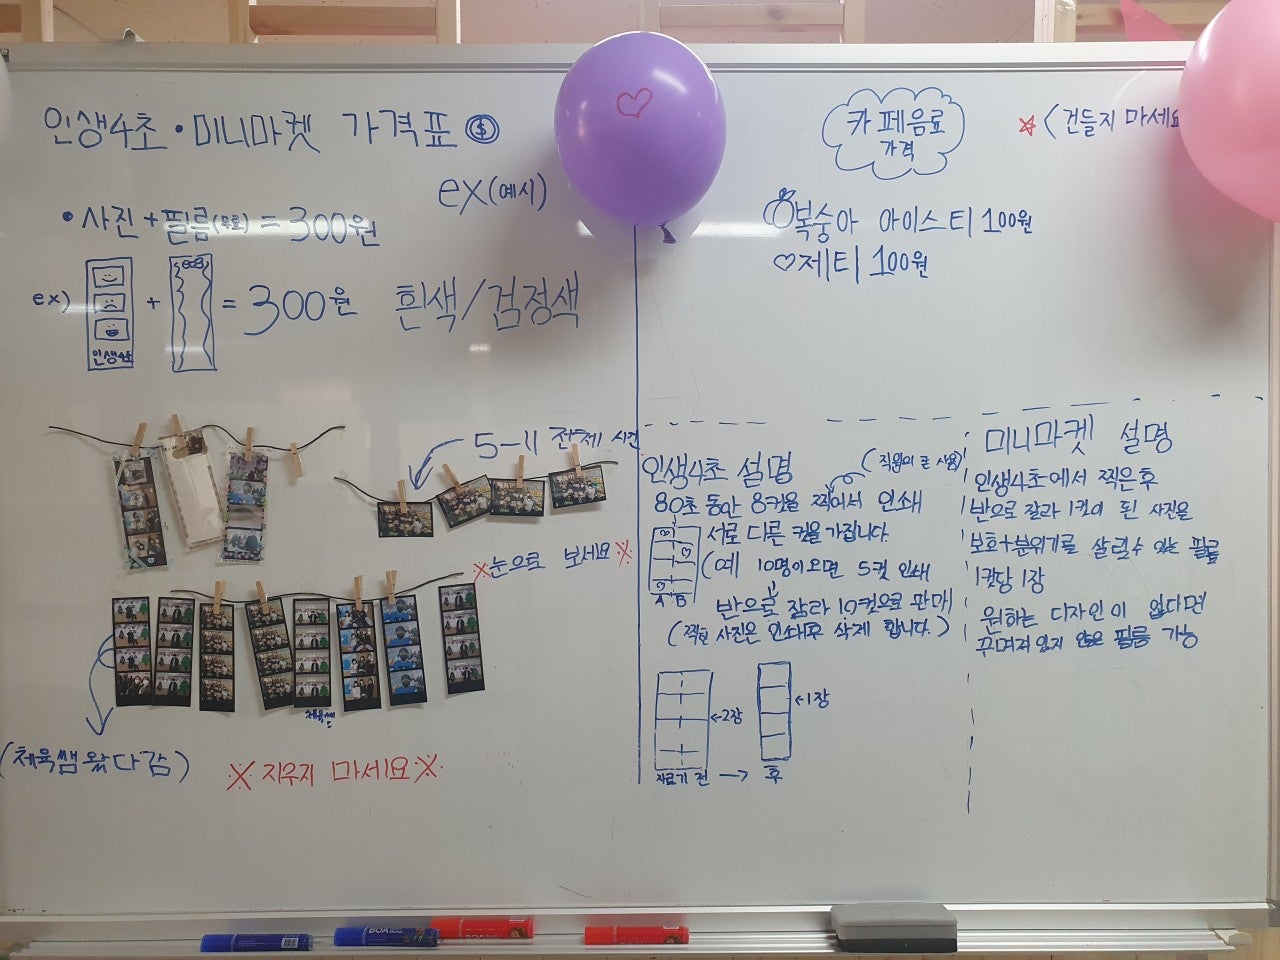 인생4초·미니마켓 가격표
ex(예시)
• 사진 + 필름(무료) = 300원
ex)
인생4초
+
= 300원
흰색/검정색
5-11 전체 사진
※눈으로 보세요※
(체육쌤 왔다감)
※지우지 마세요※
카페음료
가격
☆ <건들지 마세요
복숭아 아이스티 100원
♡제티 100원
인생4초 설명
(직원의 폰 사용)
80초 동안 8컷을 찍어서 인쇄
서로 다른 컷을 가집니다.
(예 10명이으면 5컷 인쇄
A B
반으로 잘라 10컷으로 판매
(찍힌 사진은 인쇄후 삭제 합니다.)
←2장
←1장
자르기 전 → 후
미니마켓 설명
인생4초에서 찍은후
반으로 잘라 1컷이 된 사진을
보호+분위기를 살릴수 있는 필름
1컷당 1장
원하는 디자인이 없다면
꾸며져 있지 않은 필름 가능
BOA